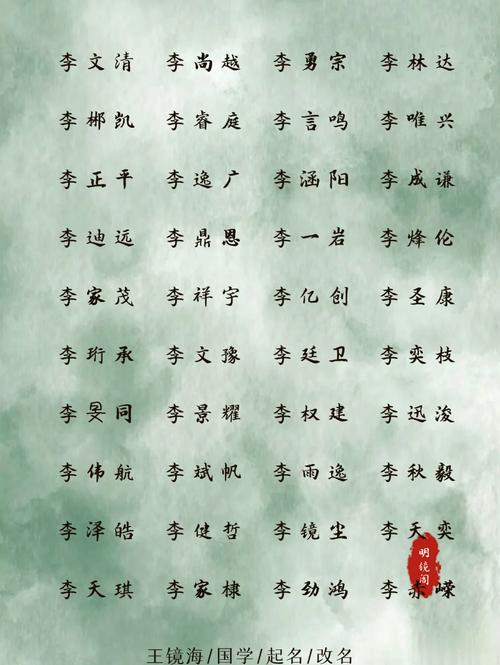 李文清 李尚越 李勇宗 李林达
李郴凯 李睿庭 李言鸣 李唯兴
李正平 李逸广 李涵阳 李成谦
李迪远 李鼎恩 李一岩 李烽伦
李家茂 李祥宇 李亿创 李圣康
李珩承 李文豫 李廷卫 李奕枝
李旻同 李景耀 李权建 李迅浚
李伟航 李斌帆 李雨逸 李秋毅
李泽皓 李健哲 李镜尘 李天奕
李天琪 李家棣 李劲鸿 李赤嵘
明镜阁
王镜海/国学/起名/改名